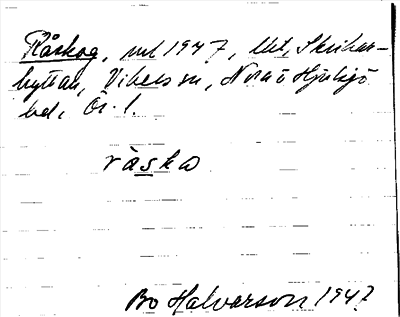 Råskog, uml 1947, Utt, Skrikar-
hyttan, Vikers sn, Nora o Hjulsjö
bd, Ör. l.
råska
Bo Halvarson 1947